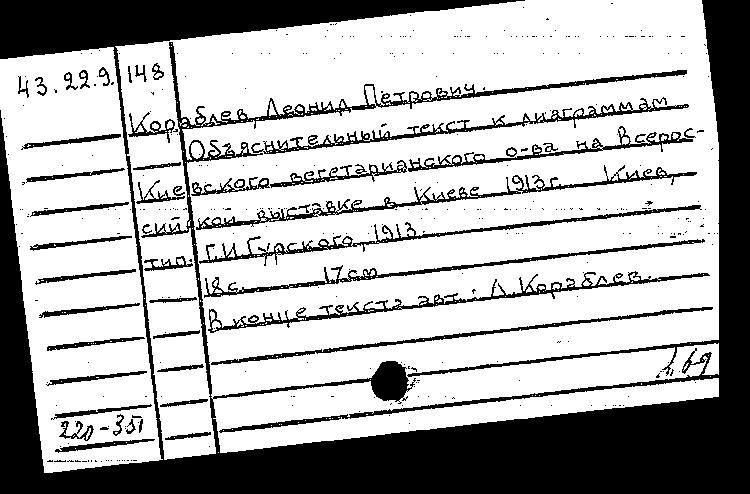 43.22.9. 148
Кораблев, Леонид Петрович.
Объяснительный текст к диаграммам
Киевского вегетарианского о-ва на Всерос-
сийской выставке в Киеве 1913г. Киев,
тип. Г.И.Гурского, 1913.
18с. 17см
В конце текста авт.: Л.Кораблев.
220-351